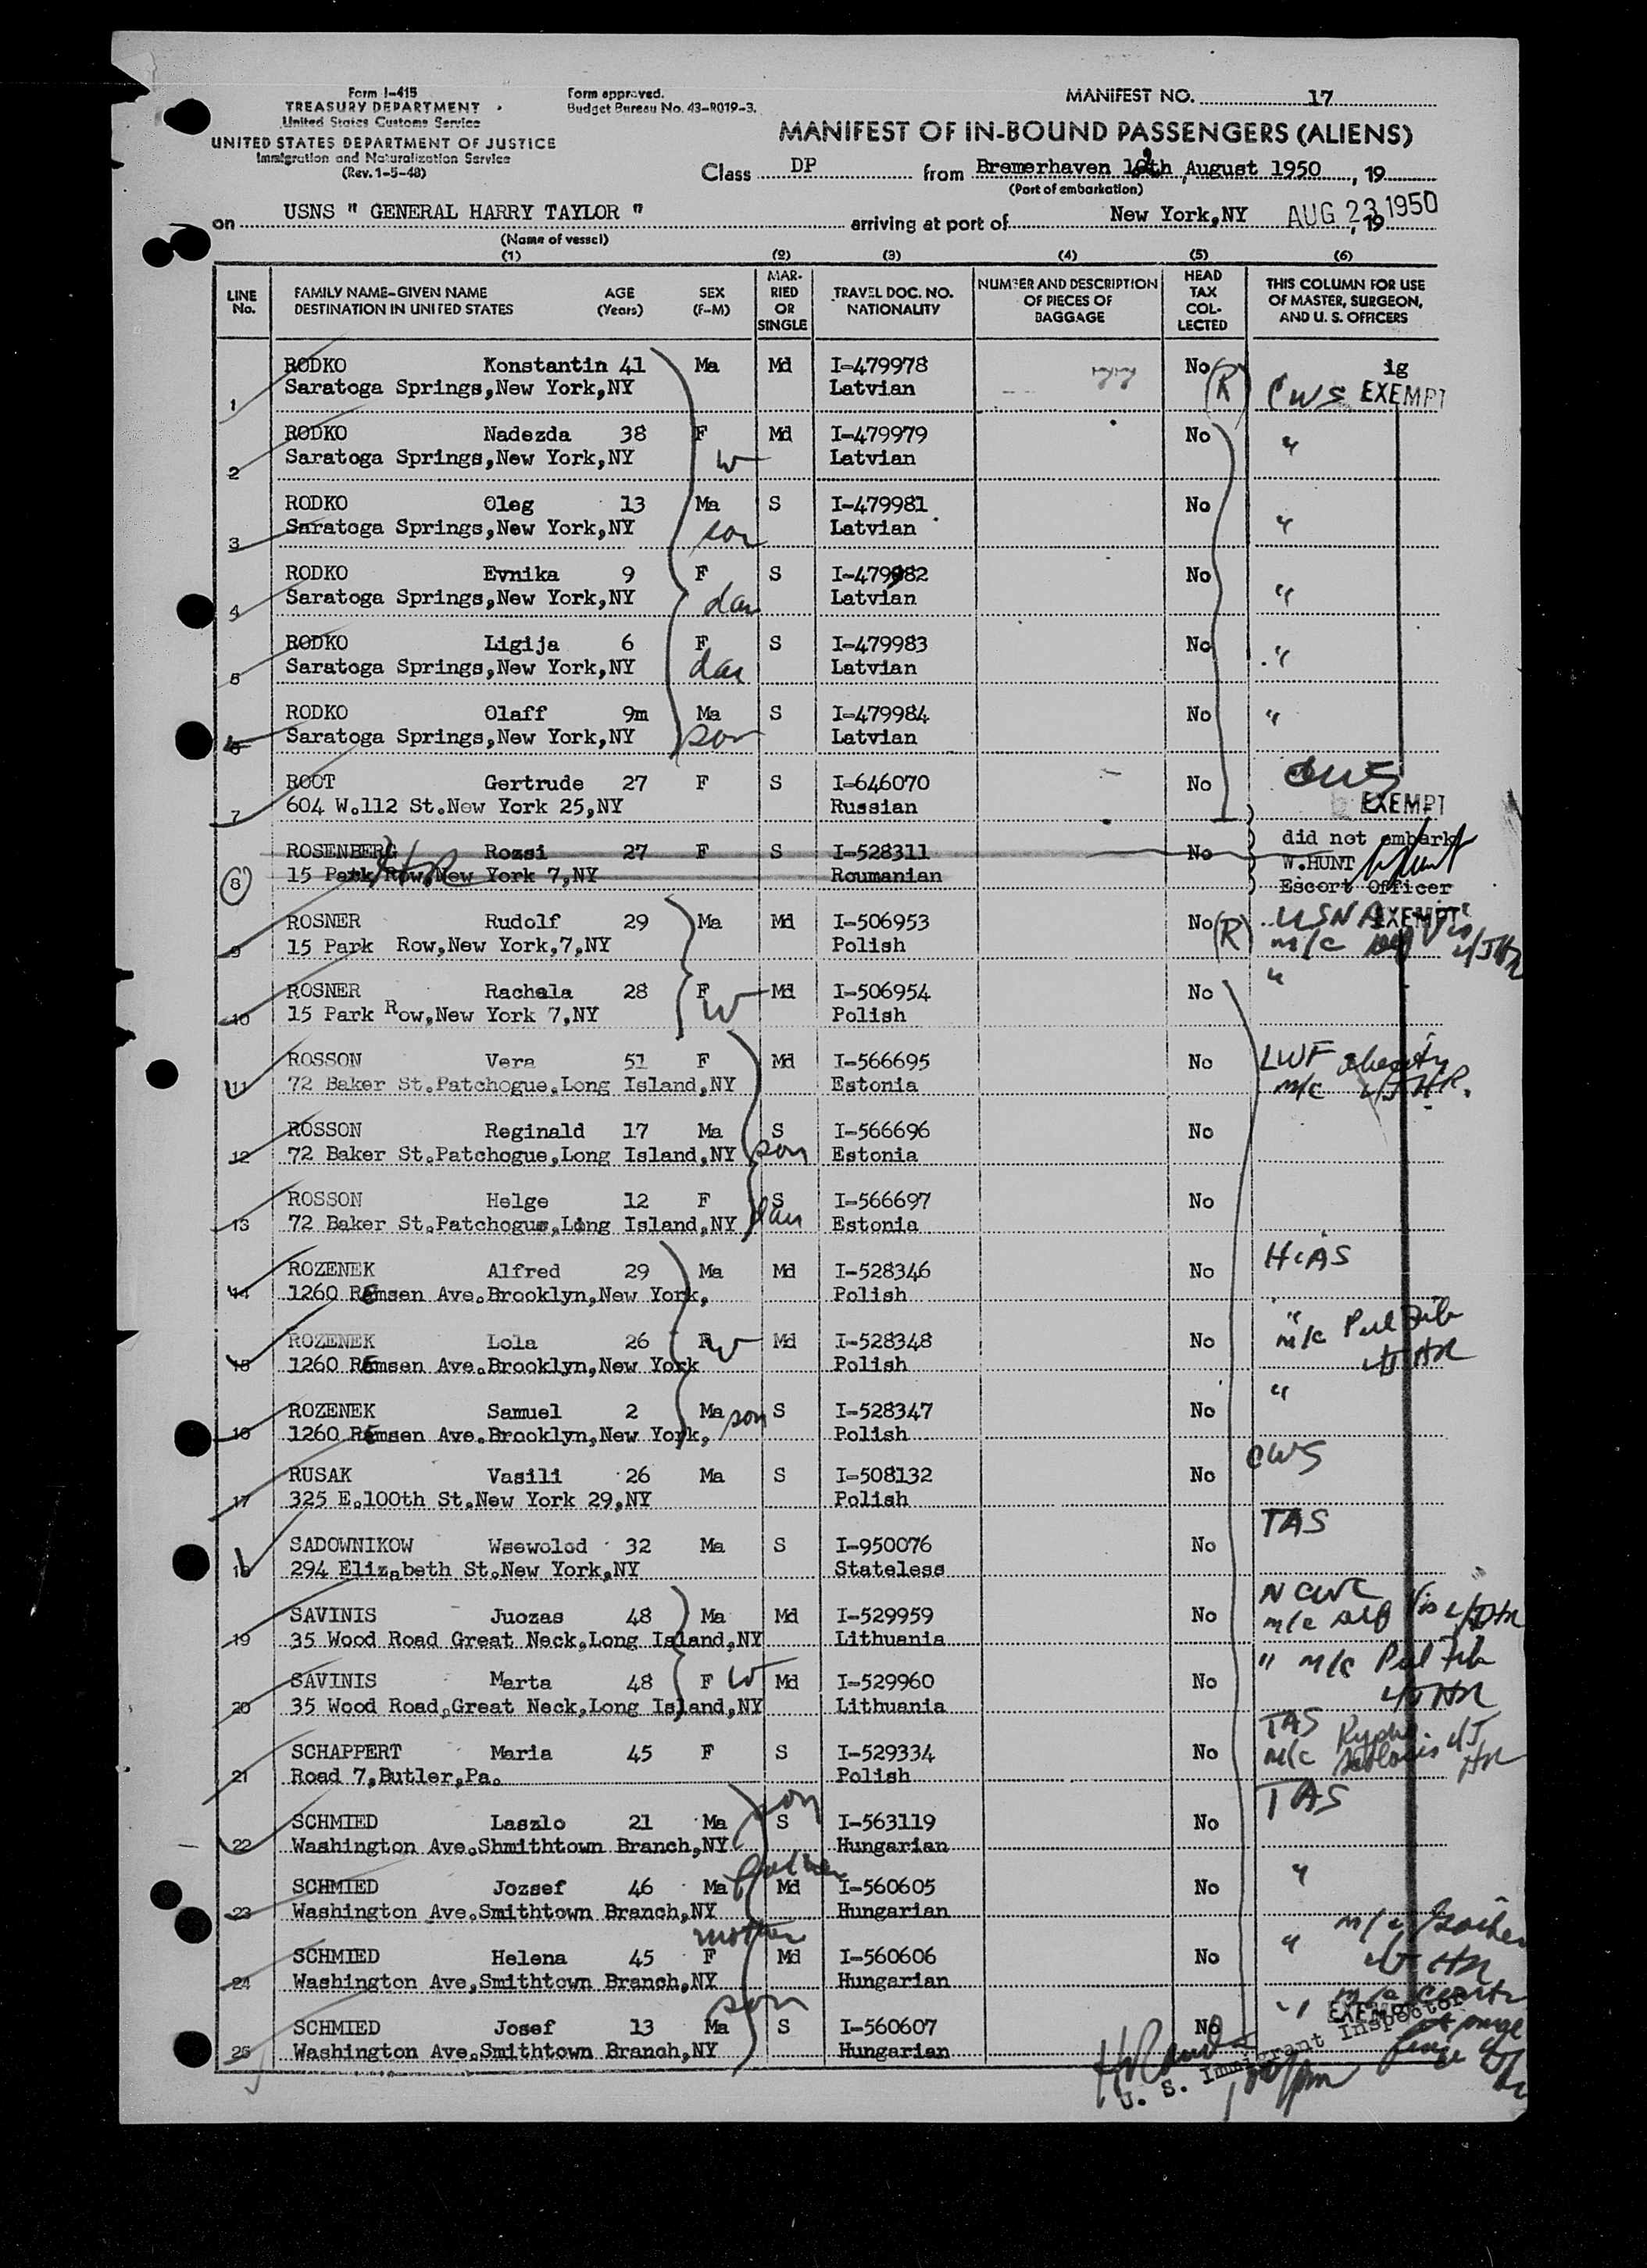 Form I-415
TREASURY DEPARTMENT
United States Customs Service
UNITED STATES DEPARTMENT OF JUSTICE
Immigration and Naturalization Service
(Rev. 1-5-48)
Form approved.
Budget Bureau No. 43-R019-3.
MANIFEST NO. 17
MANIFEST OF IN-BOUND PASSENGERS (ALIENS)
Class DP from Bremerhaven th, August 1950, 19
(Port of embarkation)
on USNS " GENERAL HARRY TAYLOR " arriving at port of New York,NY AUG 23 1950, 19
(Name of vessel)
(1) (2) (3) (4) (5) (6)
LINE No. FAMILY NAME-GIVEN NAME DESTINATION IN UNITED STATES AGE (Years) SEX (F-M) MARRIED OR SINGLE TRAVEL DOC. NO. NATIONALITY NUMBER AND DESCRIPTION OF PIECES OF BAGGAGE HEAD TAX COLLECTED THIS COLUMN FOR USE OF MASTER, SURGEON, AND U. S. OFFICERS
RODKO Konstantin 41 Ma Md I-479978 No (R) ig
1 Saratoga Springs,New York,NY Latvian CWS EXEMPT
RODKO Nadezda 38 F Md I-479979 No "
2 Saratoga Springs,New York,NY W Latvian
RODKO Oleg 13 Ma S I-479981 No
3 Saratoga Springs,New York,NY son Latvian "
RODKO Evnika 9 F S I-479982 No
4 Saratoga Springs,New York,NY dau Latvian "
RODKO Ligija 6 F S I-479983 No
5 Saratoga Springs,New York,NY dau Latvian "
RODKO Olaff 9m Ma S I-479984 No "
6 Saratoga Springs,New York,NY son Latvian
ROOT Gertrude 27 F S I-646070 No CWS
7 604 W.112 St.New York 25,NY Russian EXEMPT
ROSENBERG Rozsi 27 F S I-528311 No did not embark
8 15 Park Row,New York 7,NY Roumanian W.HUNT
Escort Officer
ROSNER Rudolf 29 Ma Md I-506953 No (R) USNA EXEMPT
9 15 Park Row,New York,7,NY Polish m/c
ROSNER Rachela 28 F Md I-506954 No "
10 15 Park Row,New York 7,NY W Polish
ROSSON Vera 51 F Md I-566695 No LWF obesity
11 72 Baker St.Patchogue,Long Island,NY Estonia m/c
ROSSON Reginald 17 Ma S I-566696 No
12 72 Baker St.Patchogue,Long Island,NY son Estonia
ROSSON Helge 12 F S I-566697 No
13 72 Baker St.Patchogue,Long Island,NY dau Estonia
ROZENEK Alfred 29 Ma Md I-528346 No HIAS
14 1260 Remsen Ave.Brooklyn,New York, Polish
ROZENEK Lola 26 W Md I-528348 No "
15 1260 Remsen Ave.Brooklyn,New York Polish m/c Pul Fib
ROZENEK Samuel 2 Ma son S I-528347 No "
16 1260 Remsen Ave.Brooklyn,New York, Polish
RUSAK Vasili 26 Ma S I-508132 No CWS
17 325 E.100th St.New York 29,NY Polish
SADOWNIKOW Wsewolod 32 Ma S I-950076 No TAS
18 294 Elizabeth St.New York,NY Stateless
SAVINIS Juozas 48 Ma Md I-529959 No NCWC
19 35 Wood Road Great Neck,Long Island,NY Lithuania m/c
SAVINIS Marta 48 F W Md I-529960 No " m/c Pul Fib
20 35 Wood Road,Great Neck,Long Island,NY Lithuania
SCHAPPERT Maria 45 F S I-529334 No TAS
21 Road 7,Butler,Pa. Polish m/c
SCHMIED Laszlo 21 Ma son S I-563119 No TAS
22 Washington Ave.Shmithtown Branch,NY Hungarian
SCHMIED Jozsef 46 Ma father Md I-560605 No "
23 Washington Ave.Smithtown Branch,NY Hungarian
SCHMIED Helena 45 F mother Md I-560606 No " m/c
24 Washington Ave,Smithtown Branch,NY Hungarian
SCHMIED Josef 13 Ma son S I-560607 No " EXEMPT
25 Washington Ave.Smithtown Branch,NY Hungarian
U. S. Immigrant Inspector